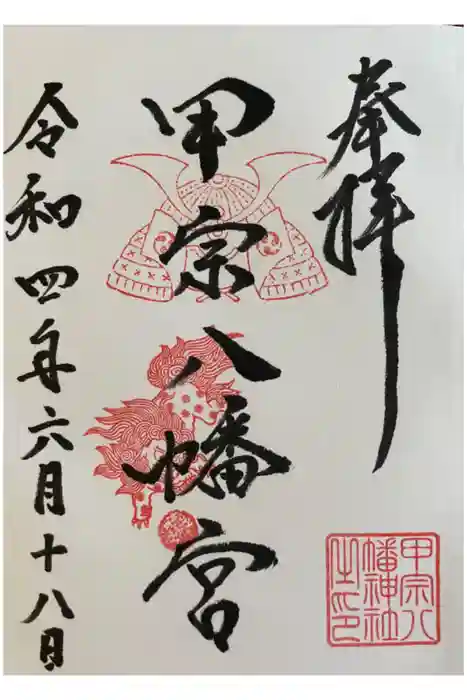 奉拝
甲宗八幡宮
甲宗八
幡神社
之印
令和四年六月十八日